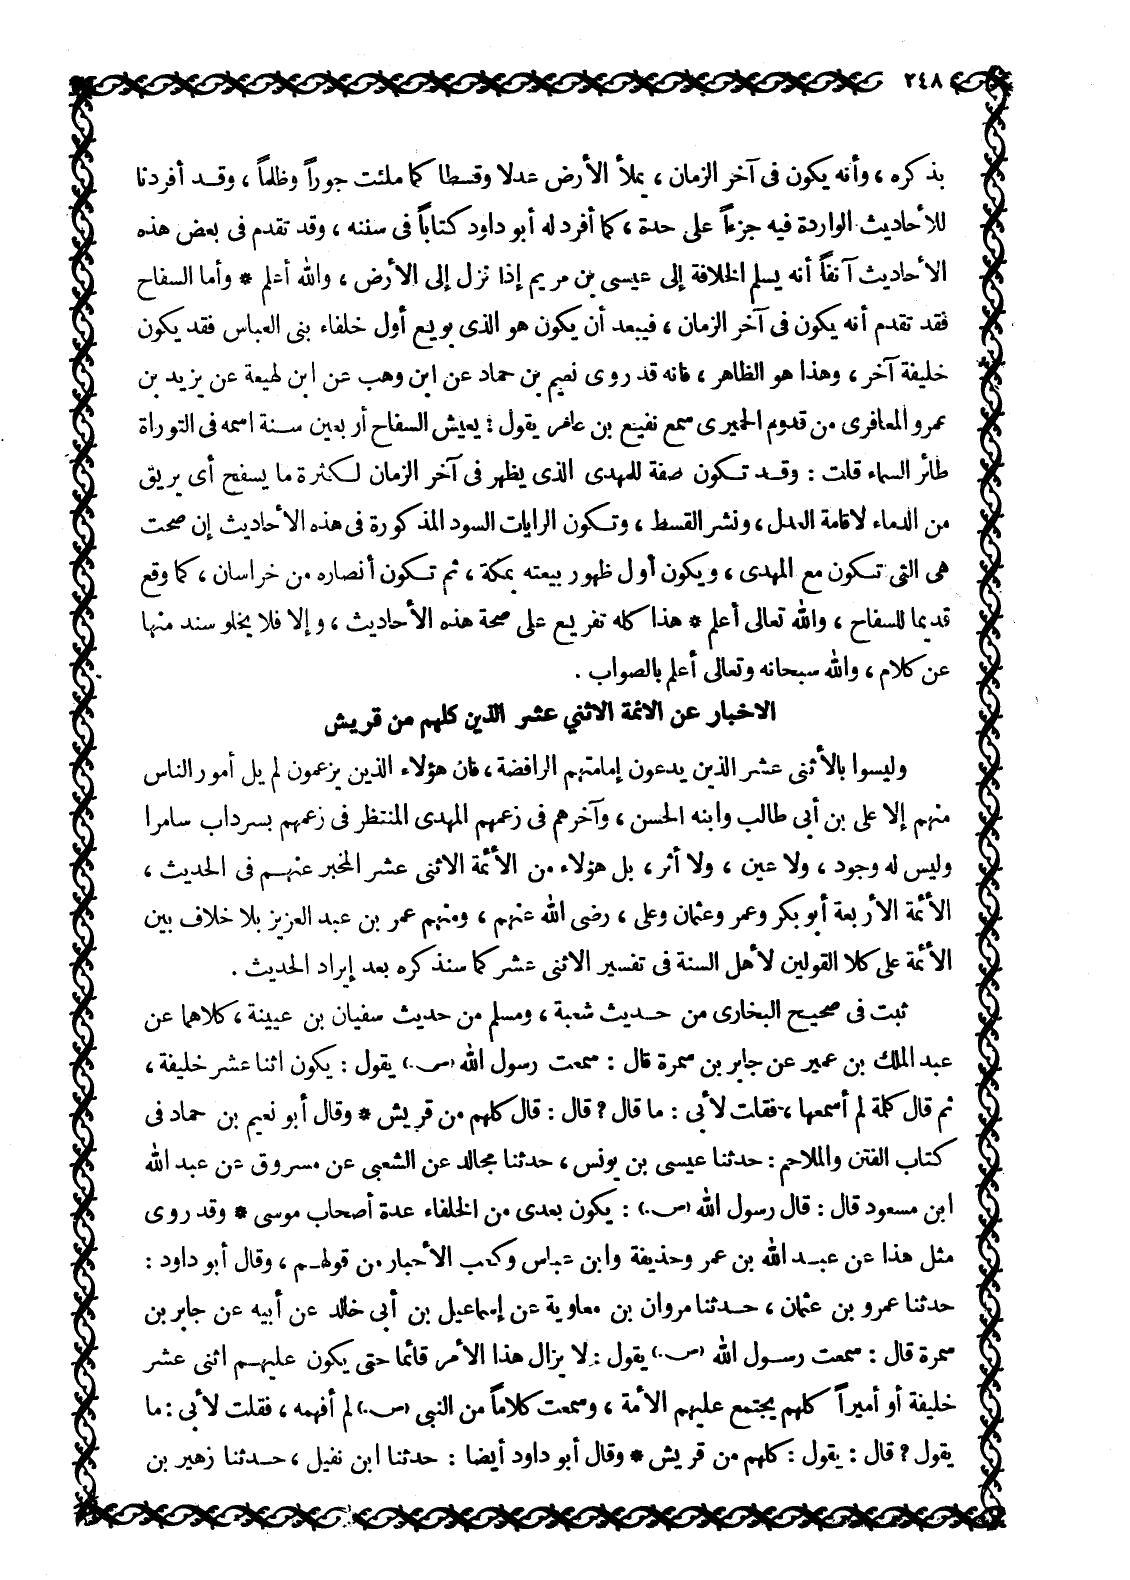 ٢٤٨
بذكره ، وأنه يكون فى آخر الزمان ، يملأ الأرض عدلا وقسطا كما ملئت جوراً وظلماً ، وقد أفردنا
للأحاديث الواردة فيه جزءاً على حدة ، كما أفرد له أبو داود كتاباً فى سننه ، وقد تقدم فى بعض هذه
الأحاديث آنفاً أنه يسلم الخلافة إلى عيسى بن مريم إذا نزل إلى الأرض ، والله أعلم * وأما السفاح
فقد تقدم أنه يكون فى آخر الزمان ، فيبعد أن يكون هو الذى بويع أول خلفاء بنى العباس فقد يكون
خليفة آخر ، وهذا هو الظاهر ، فانه قد روى نعيم بن حماد عن ابن وهب عن ابن لهيعة عن يزيد بن
عمرو المعافرى من قدوم الحميرى سمع نفيع بن عامر يقول : يعيش السفاح أربعين سنة اسمه فى التوراة
طائر السماء قلت : وقد تكون صفة للمهدى الذى يظهر فى آخر الزمان لكثرة ما يسفح أى يريق
من الدماء لاقامة العدل ، ونشر القسط ، وتكون الرايات السود المذكورة فى هذه الأحاديث إن صحت
هى التى تكون مع المهدى ، ويكون أول ظهور بيعته بمكة ، ثم تكون أنصاره من خراسان ، كما وقع
قديما للسفاح ، والله تعالى أعلم * هذا كله تفريع على صحة هذه الأحاديث ، وإلا فلا يخلو سند منها
عن كلام ، والله سبحانه وتعالى أعلم بالصواب .
الاخبار عن الائمة الاثني عشر الذين كلهم من قريش
وليسوا بالأثنى عشر الذين يدعون إمامتهم الرافضة ، فان هؤلاء الذين يزعمون لم يل أمور الناس
منهم إلا على بن أبى طالب وابنه الحسن ، وآخرهم فى زعمهم المهدى المنتظر فى زعمهم بسرداب سامرا
وليس له وجود ، ولا عين ، ولا أثر ، بل هؤلاء من الأئمة الاثنى عشر المخبر عنهم فى الحديث ،
الأئمة الأربعة أبو بكر وعمر وعثمان وعلى ، رضى الله عنهم ، ومنهم عمر بن عبد العزيز بلا خلاف بين
الأئمة على كلا القولين لأهل السنة فى تفسير الاثنى عشر كما سنذكره بعد إيراد الحديث .
ثبت فى صحيح البخارى من حديث شعبة ، ومسلم من حديث سفيان بن عيينة ، كلاهما عن
عبد الملك بن عمير عن جابر بن سمرة قال : سمعت رسول الله (ص.) يقول : يكون اثنا عشر خليفة ،
ثم قال كلمة لم أسمعها ، فقلت لأبى : ما قال ? قال : قال كلهم من قريش * وقال أبو نعيم بن حماد فى
كتاب الفتن والملاحم : حدثنا عيسى بن يونس ، حدثنا مجالد عن الشعبى عن مسروق عن عبد الله
ابن مسعود قال : قال رسول الله (ص.) : يكون بعدى من الخلفاء عدة أصحاب موسى * وقد روى
مثل هذا عن عبد الله بن عمر وحذيفة وابن عباس وكعب الأحبار من قولهم ، وقال أبو داود :
حدثنا عمرو بن عثمان ، حدثنا مروان بن معاوية عن إسماعيل بن أبى خالد عن أبيه عن جابر بن
سمرة قال : سمعت رسول الله (ص.) يقول : لا يزال هذا الأمر قائما حتى يكون عليهم اثنى عشر
خليفة أو أميراً كلهم يجتمع عليهم الأمة ، وسمعت كلاماً من النبى (ص.) لم أفهمه ، فقلت لأبى : ما
يقول ? قال : يقول : كلهم من قريش * وقال أبو داود أيضا : حدثنا ابن نفيل ، حدثنا زهير بن